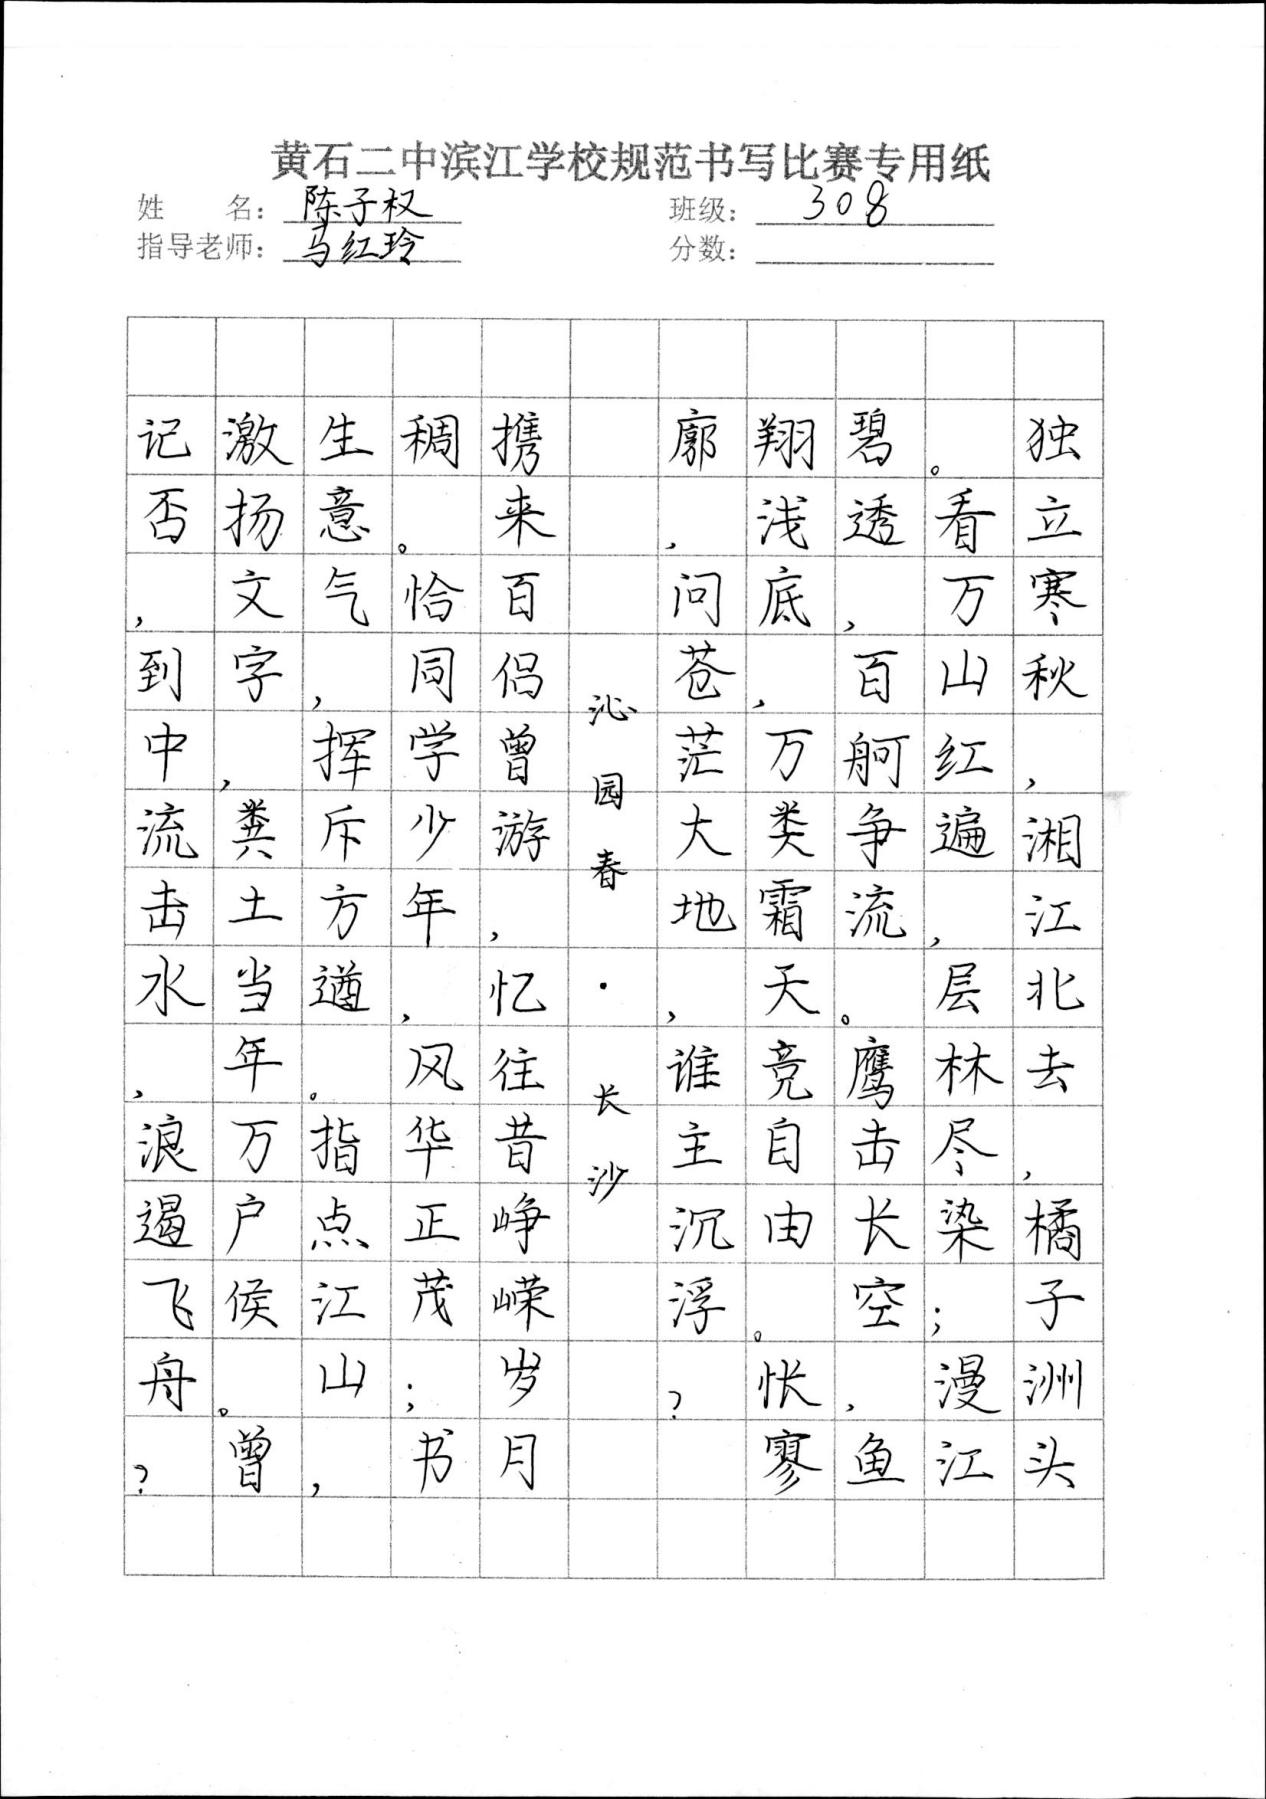 黄石二中滨江学校规范书写比赛专用纸
姓 名：陈子权 班级：308
指导老师：马红玲 分数：
独立寒秋，湘江北去，橘子洲头
。看万山红遍，层林尽染；漫江
碧透，百舸争流。鹰击长空，鱼
翔浅底，万类霜天竞自由。怅寥
廓，问苍茫大地，谁主沉浮？
沁园春·长沙
携来百侣曾游，忆往昔峥嵘岁月
稠。恰同学少年，风华正茂；书
生意气，挥斥方遒。指点江山，
激扬文字，粪土当年万户侯。曾
记否，到中流击水，浪遏飞舟？